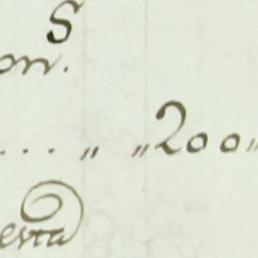 S
on.
. . . . „ „ 200 „
esta